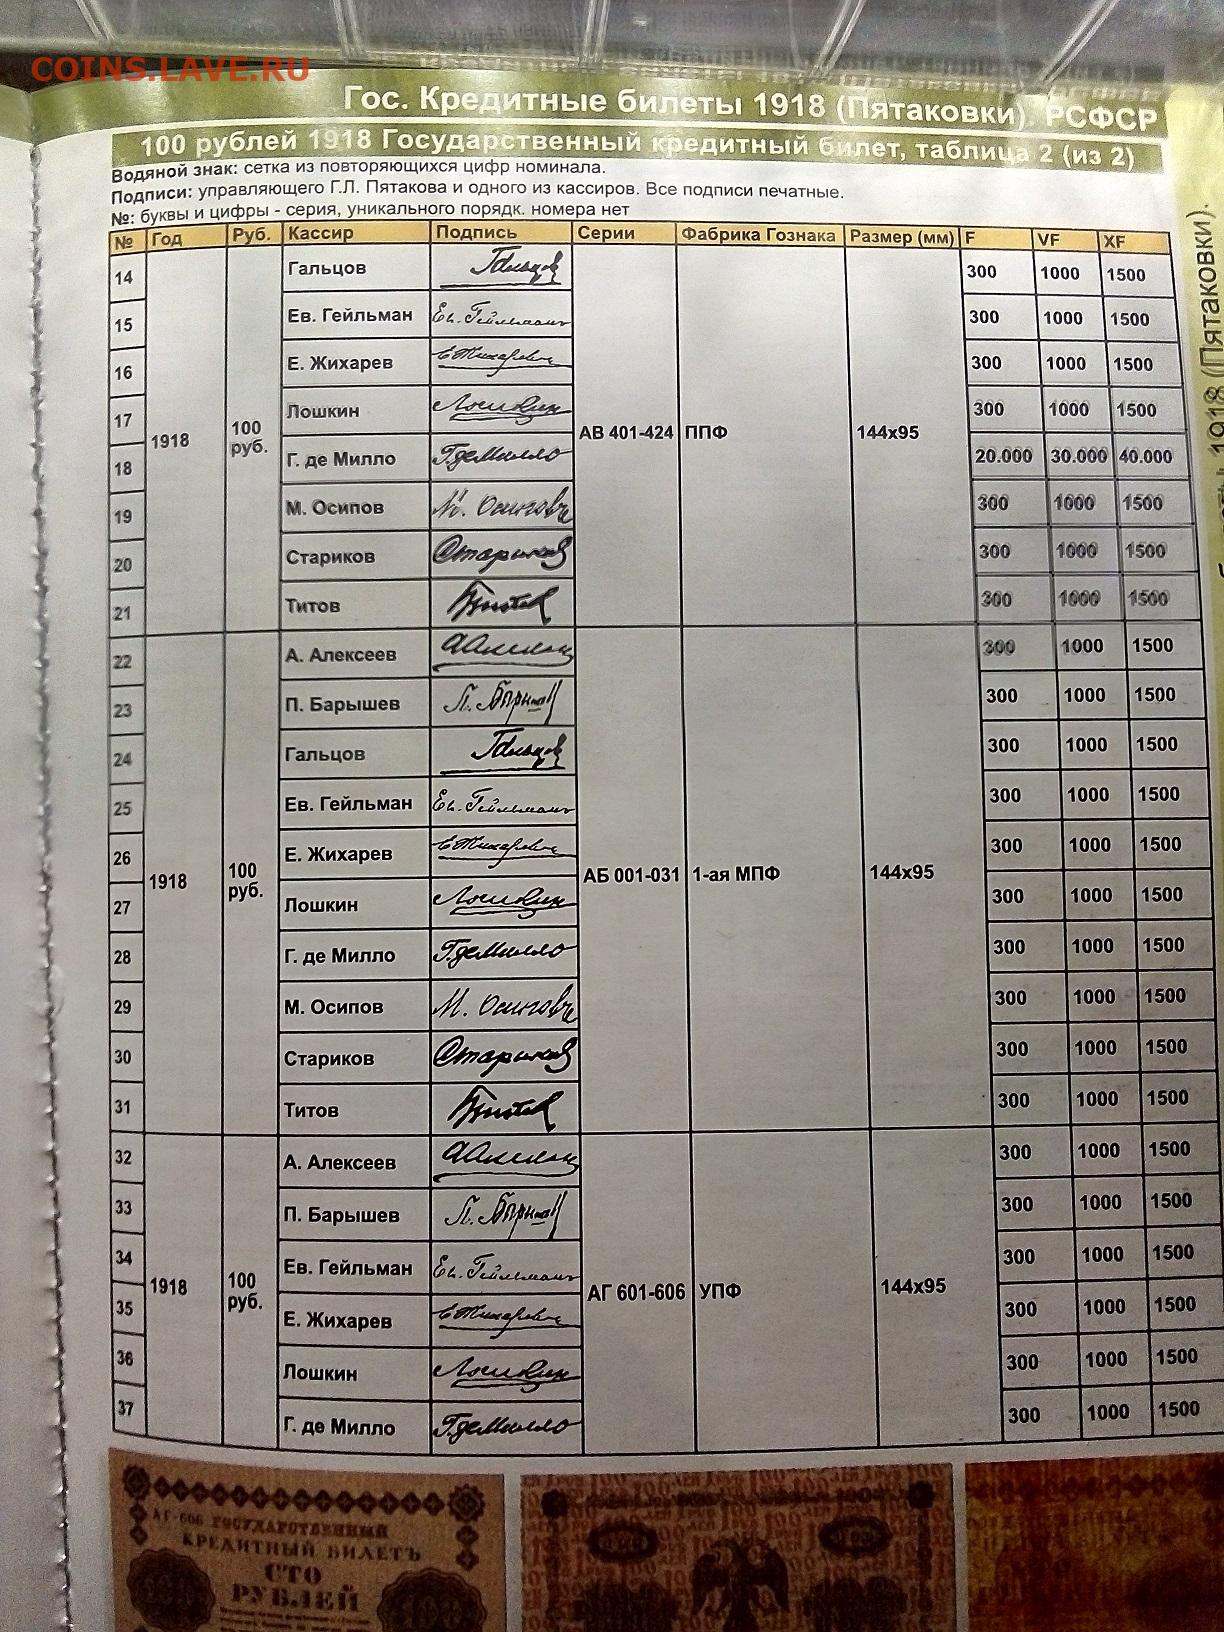 COINS.LAVE.RU
Гос. Кредитные билеты 1918 (Пятаковки). РСФСР
100 рублей 1918 Государственный кредитный билет, таблица 2 (из 2)
Водяной знак: сетка из повторяющихся цифр номинала.
Подписи: управляющего Г.Л. Пятакова и одного из кассиров. Все подписи печатные.
№: буквы и цифры - серия, уникального порядк. номера нет
№ Год Руб. Кассир Подпись Серии Фабрика Гознака Размер (мм) F VF XF
14 Гальцов 300 1000 1500
15 Ев. Гейльман Ев. Гейльманъ 300 1000 1500
16 Е. Жихарев 300 1000 1500
17 Лошкин 300 1000 1500
1918 100 руб. АВ 401-424 ППФ 144х95
18 Г. де Милло Г. де Милло 20.000 30.000 40.000
19 М. Осипов М. Осиповъ 300 1000 1500
20 Стариков 300 1000 1500
21 Титов 300 1000 1500
22 А. Алексеев 300 1000 1500
23 П. Барышев 300 1000 1500
24 Гальцов 300 1000 1500
25 Ев. Гейльман Ев. Гейльманъ 300 1000 1500
26 Е. Жихарев 300 1000 1500
1918 100 руб. АБ 001-031 1-ая МПФ 144х95
27 Лошкин 300 1000 1500
28 Г. де Милло Г. де Милло 300 1000 1500
29 М. Осипов М. Осиповъ 300 1000 1500
30 Стариков 300 1000 1500
31 Титов 300 1000 1500
32 А. Алексеев 300 1000 1500
33 П. Барышев 300 1000 1500
34 Ев. Гейльман Ев. Гейльманъ 300 1000 1500
1918 100 руб. АГ 601-606 УПФ 144х95
35 Е. Жихарев 300 1000 1500
36 Лошкин 300 1000 1500
37 Г. де Милло Г. де Милло 300 1000 1500
АГ-606 ГОСУДАРСТВЕННЫЙ
КРЕДИТНЫЙ БИЛЕТЪ
СТО
РУБЛЕЙ
1918 (Пятаковки).